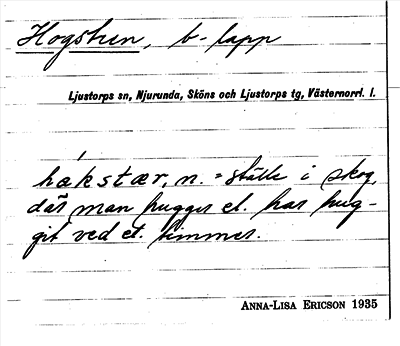 Hogstren, b-lapp
Ljustorps sn, Njurunda, Sköns och Ljustorps tg, Västernorrl. l.
hákstær, n. = ställe i skog,
där man hugger el. har hug-
git ved el. timmer.
ANNA-LISA ERICSON 1935